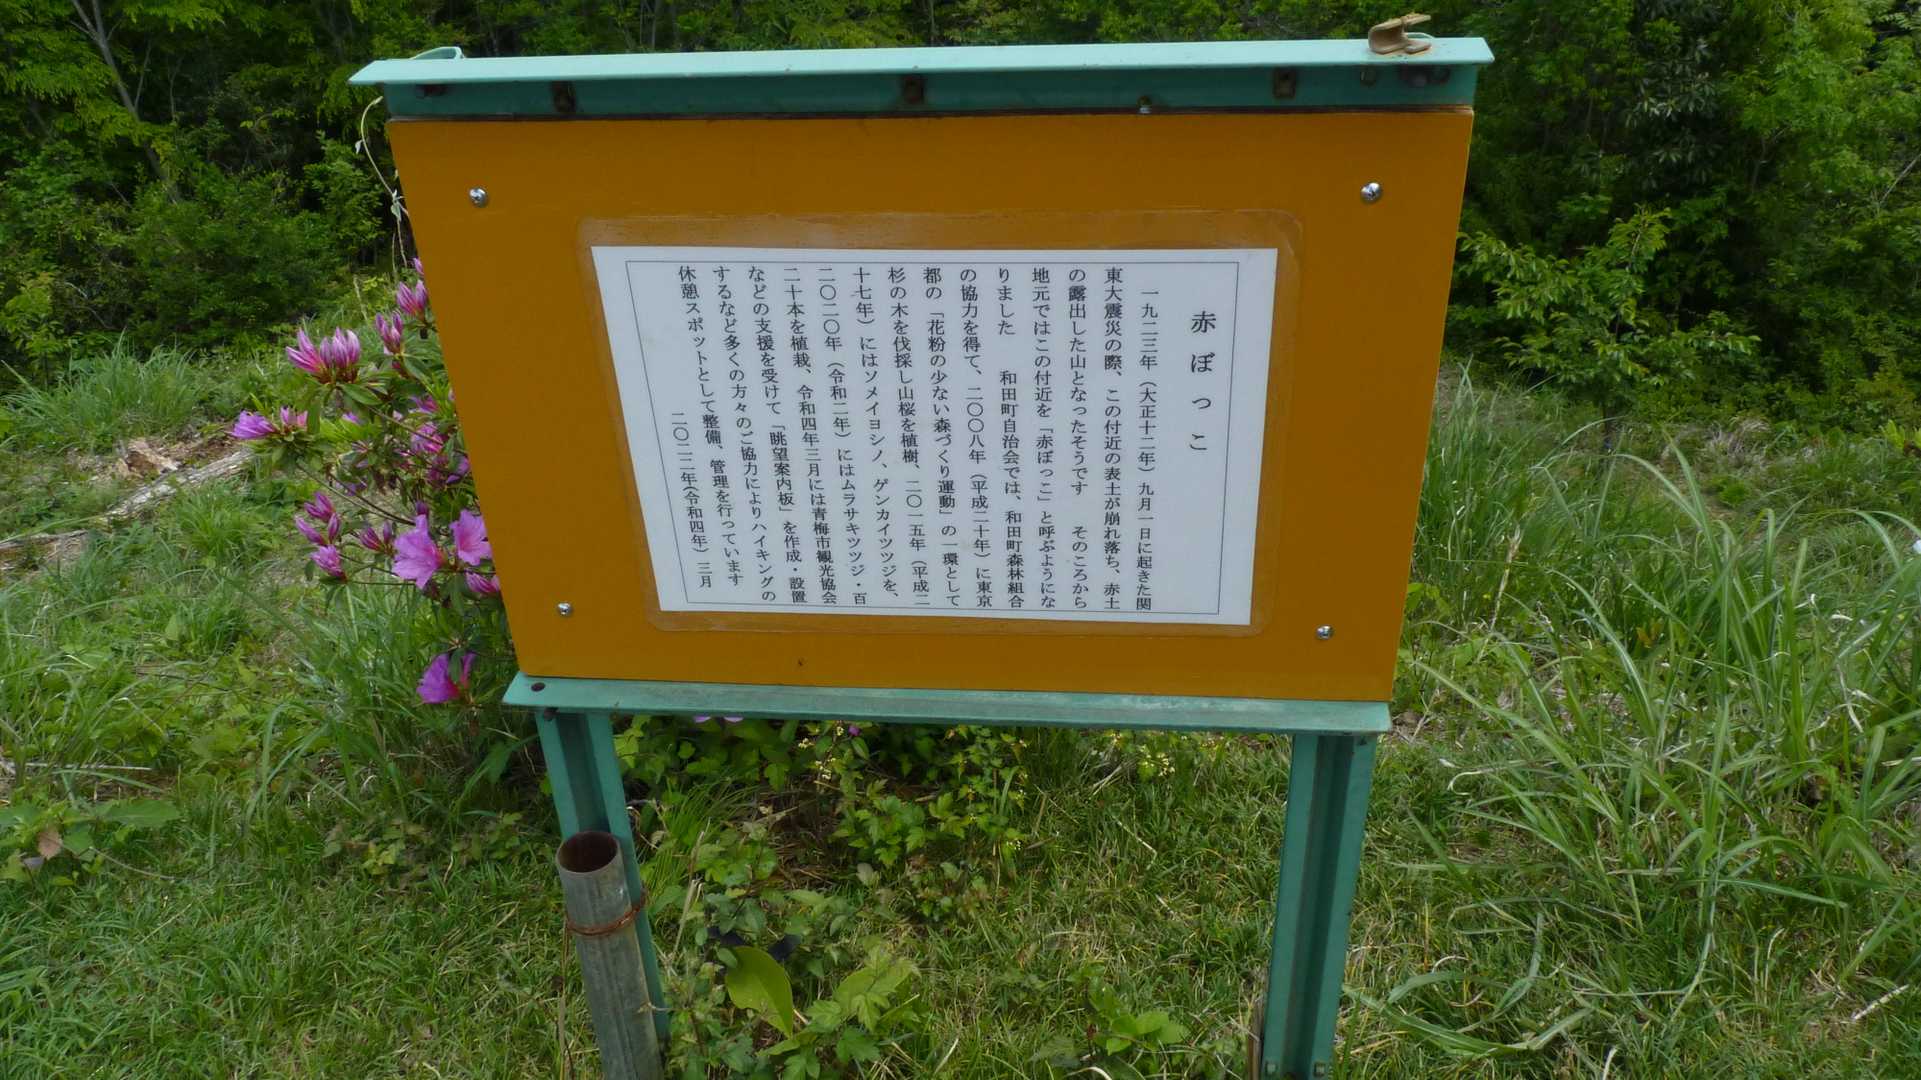 赤ぼっこ
一九二三年（大正十二年）九月一日に起きた関
東大震災の際、この付近の表土が崩れ落ち、赤土
の露出した山となったそうです　そのころから
地元ではこの付近を「赤ぼっこ」と呼ぶようにな
りました　和田町自治会では、和田町森林組合
の協力を得て、二〇〇八年（平成二十年）に東京
都の「花粉の少ない森づくり運動」の一環として
杉の木を伐採し山桜を植樹、二〇一五年（平成二
十七年）にはソメイヨシノ、ゲンカイツツジを、
二〇二〇年（令和二年）にはムラサキツツジ・百
二十本を植栽、令和四年三月には青梅市観光協会
などの支援を受けて「眺望案内板」を作成・設置
するなど多くの方々のご協力によりハイキングの
休憩スポットとして整備、管理を行っています
二〇二二年(令和四年）三月